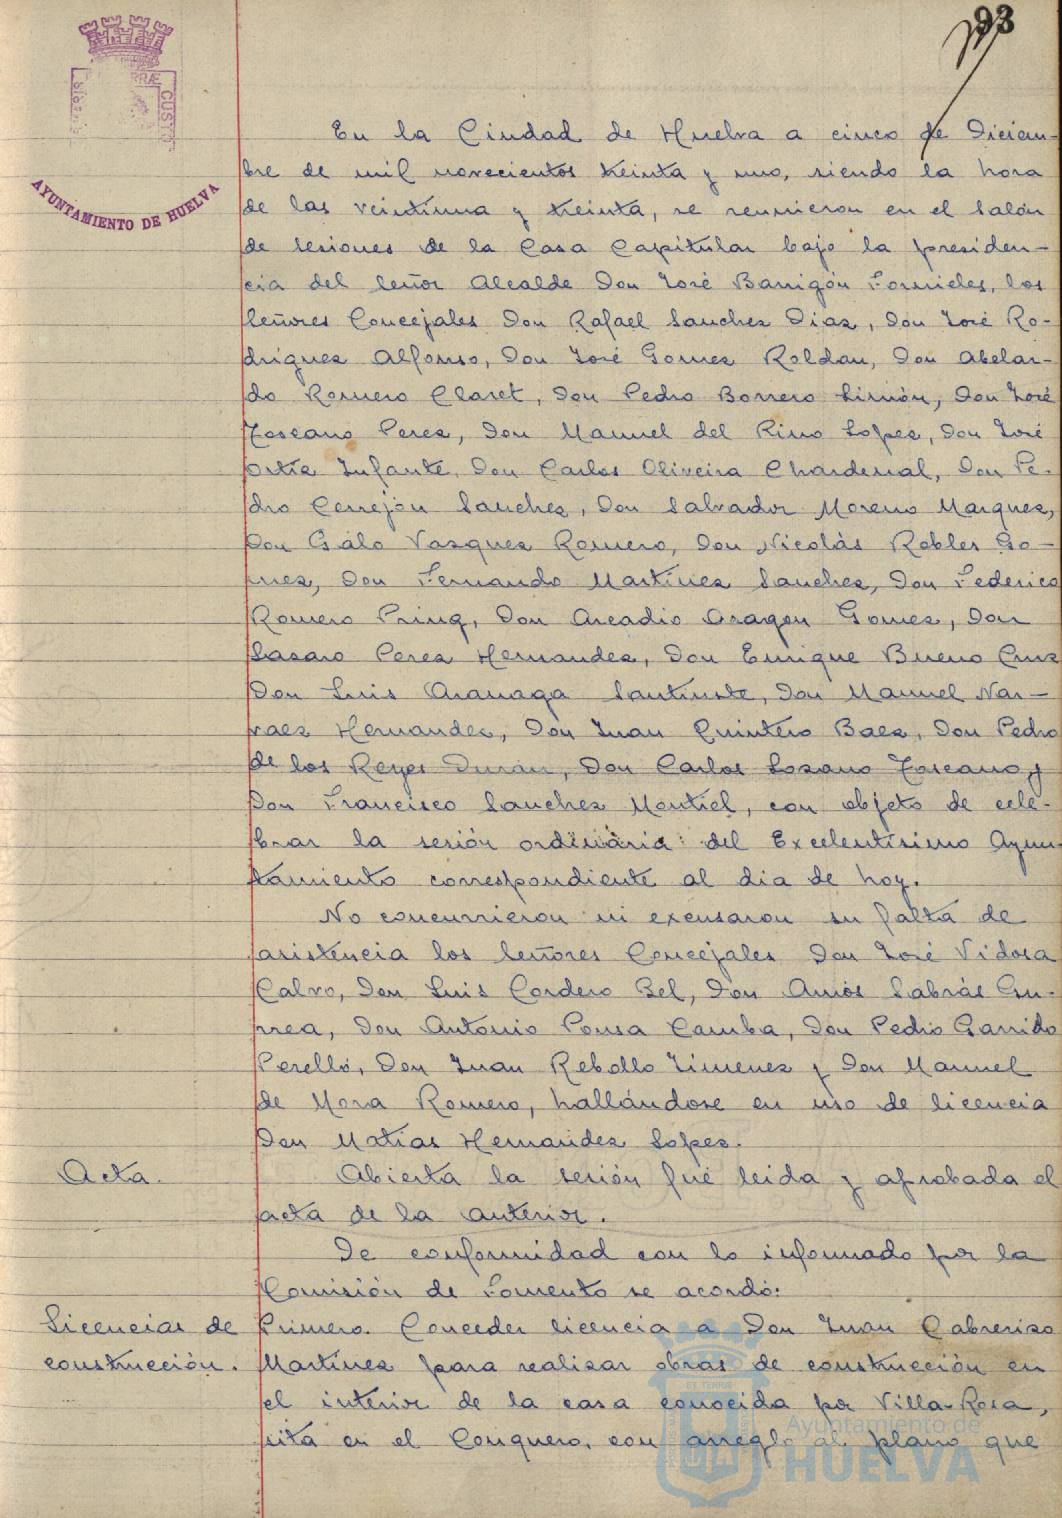 93
AYUNTAMIENTO DE HUELVA
En la Ciudad de Huelva a cinco de Diciem-
bre de mil novecientos treinta y uno, siendo la hora
de las veintiuna y treinta, se reunieron en el Salón
de Sesiones de la Casa Capitular bajo la presiden-
cia del Señor Alcalde Don José Barrigón Fornieles, los
Señores Concejales Don Rafael Sanchez Diaz, Don José Ro-
driguez Alfonso, Don José Gomez Roldan, Don Abelar-
do Romero Claret, Don Pedro Borrero Limón, Don José
Toscano Perez, Don Manuel del Pino Lopez, Don José
Ortiz Infante, Don Carlos Oliveira Chardenal, Don Pe-
dro Cerrejón Sanchez, Don Salvador Moreno Marquez,
Don Gálo Vazquez Romero, Don Nicolás Robles Go-
mez, Don Fernando Martínez Sanchez, Don Federico
Romero Pring, Don Arcadio Aragon Gomez, Don
Lazaro Perez Hernandez, Don Enrique Bueno Cruz
Don Luis Aranaga Santiuste, Don Manuel Nar-
vaez Hernandez, Don Juan Quintero Baez, Don Pedro
de los Reyes Durán, Don Carlos Lozano Toscano y
Don Francisco Sanchez Montiel, con objeto de cele-
brar la sesión ordinaria del Excelentísimo Ayun-
tamiento correspondiente al dia de hoy.
No concurrieron ni excusaron su falta de
asistencia los Señores Concejales Don José Vidosa
Calvo, Don Luis Cordero Bel, Don Amós Sabrás Gu-
rrea, Don Antonio Pousa Camba, Don Pedro Garrido
Perelló, Don Juan Rebollo Jimenez y Don Manuel
de Mora Romero, hallándose en uso de licencia
Don Matías Hernandez Lopez.
Acta. Abierta la sesión fué leida y aprobada el
acta de la anterior.
De conformidad con lo informado por la
Comisión de Fomento se acordó:
Licencias de Primero. Conceder licencia a Don Juan Cabrerizo
construcción. Martínez para realizar obras de construcción en
el interior de la casa conocida por Villa-Rosa,
sita en el Conquero, con arreglo al plano que
Ayuntamiento de
HUELVA